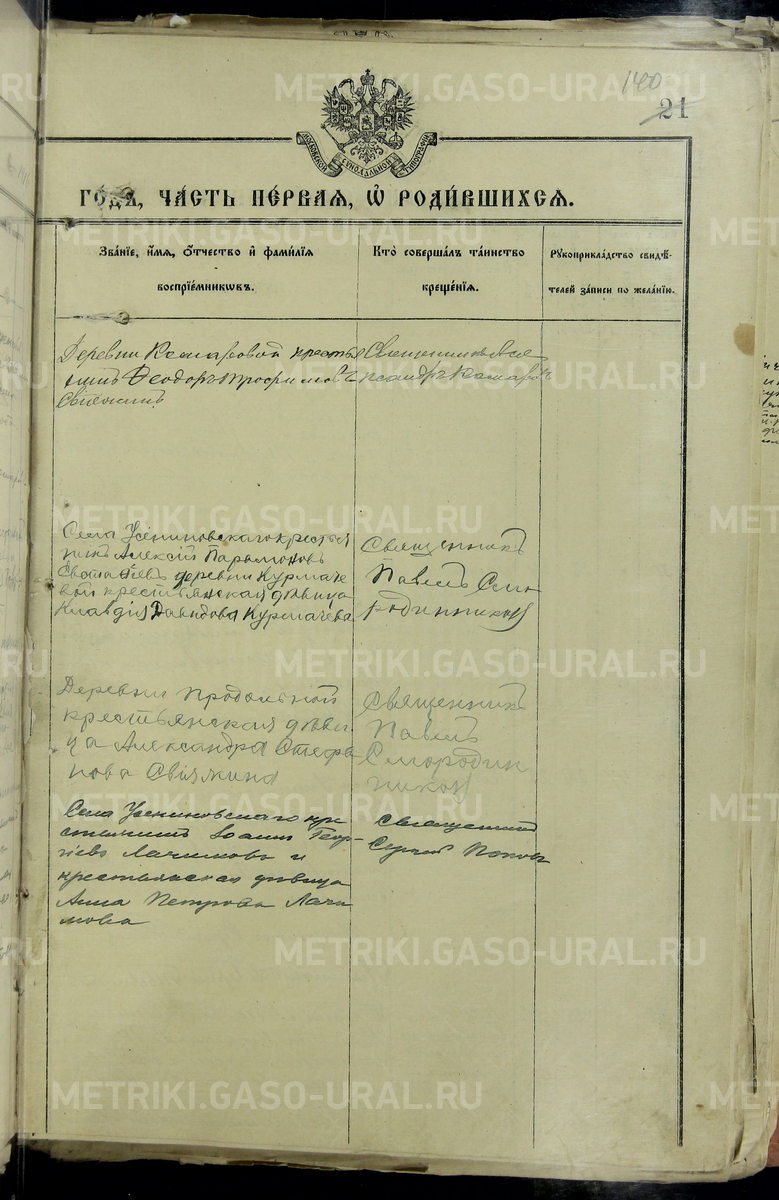 140
21
МОСКОВСКОЙ СѴНОДАЛЬНОЙ ТИПОГРАФІИ
ГО́ДЪ, ЧА́СТЬ ПЕ́РВАЯ, Ѡ҆ РОДИ́ВШИХСЯ.
Зва́нїе, и҆́мя, ѻ҆́тчество и҆ фами́лїя
воспрїе́мникѡвъ.
Кто̀ соверша́лъ та́инство
креще́нїя.
Рꙋкоприкла́дство свидѣ́-
телей за́писи по жела́нїю.
Деревни Комаровой кресть
янинъ Ѳеодоръ Трофимовъ
Священникъ Але
ксандръ Комаровъ
Села Усениновскаго крестья
нинъ Алексій Парамоновъ
деревни Курмаче
вой крестьянская дѣвица
Клавдія Давидова Курмачева
Священникъ
Павелъ Смо
родинниковъ
Деревни Продольной
крестьянская дѣви
ца Александра Стефа
нова Свіякина
Священникъ
Павелъ
Смородин
никовъ
Села Усениновскаго кре
стьянинъ Іоаннъ Геор-
гіевъ Лачимовъ и
крестьянская дѣвица
Анна Петрова Лачи
мова
Священник
Сергей Попов
METRIKI.GASO-URAL.RU